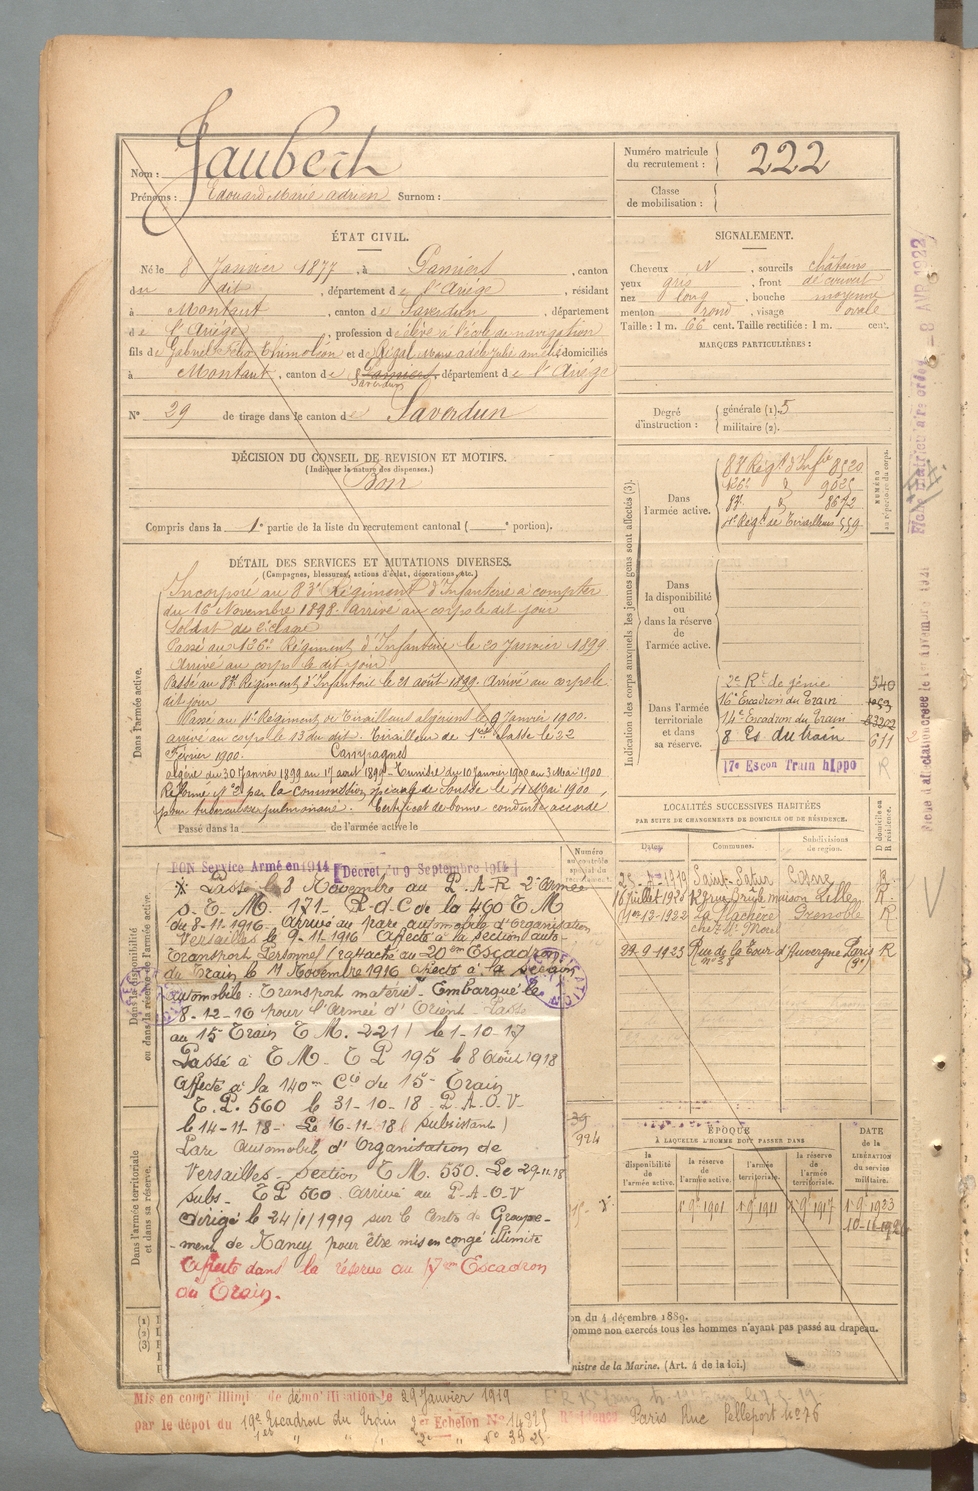 Nom : Jaubert
Prénoms : Edouard Marie Adrien Surnom :
Numéro matricule du recrutement : 222
Classe de mobilisation :
ÉTAT CIVIL.
Né le 8 Janvier 1877, à Pamiers, canton
du dit, département de l'Ariège, résidant
à Montaut, canton de Saverdun, département
de l'Ariège, profession d'élève à l'école de navigation
fils de Gabriel Félix Thimoléon et de Rigal Marie adèle Julie domiciliés
à Montaut, canton de Pamiers Saverdun, département de l'Ariège
N° 29 de tirage dans le canton de Saverdun
SIGNALEMENT.
Cheveux N, sourcils châtains
yeux gris, front découvert
nez long, bouche moyenne
menton rond, visage ovale
Taille : 1 m. 66 cent. Taille rectifiée : 1 m. cent.
MARQUES PARTICULIÈRES :
Degré d'instruction : générale (1). 5
militaire (2).
DÉCISION DU CONSEIL DE REVISION ET MOTIFS.
(Indiquer la nature des dispenses.)
Bon
Compris dans la 1e partie de la liste du recrutement cantonal ( portion).
DÉTAIL DES SERVICES ET MUTATIONS DIVERSES.
(Campagnes, blessures, actions d'éclat, décorations, etc.)
Dans l'armée active.
Incorporé au 83e Régiment d'Infanterie à compter
du 16 Novembre 1898. Arrivé au corps le dit jour
Soldat de 2e classe
Passé au 126e Régiment d'Infanterie le 20 Janvier 1899
Arrivé au corps le dit jour
Passé au 87 Régiment d'Infanterie le 21 août 1899. Arrivé au corps le
dit jour
Passé au 4e Régiment de Tirailleurs algériens le 9 Janvier 1900.
arrivé au corps le 13 du dit. Tirailleur de 1ère classe le 22
Février 1900. Campagnes
algérie du 30 Janvier 1899 au 17 août 1899 - Tunisie du 10 Janvier 1900 au 3 Mai 1900
Réformé N° 2 par la commission spéciale de Sousse le 4 Mai 1900,
pour tuberculose pulmonaire. Certificat de bonne conduite accordé
Passé dans la de l'armée active le
Indication des corps auxquels les jeunes gens sont affectés (3).
NUMÉRO au répertoire du corps.
Dans l'armée active.
83 Régt d'Infie 8520
126e d° 9625
87 d° 8672
4e Régt de Tirailleurs 559
Dans la disponibilité ou dans la réserve de l'armée active.
Dans l'armée territoriale et dans sa réserve.
2e Rt de génie 540
16e Escadron du Train 1253
14e Escadron du Train 23202
8 Es du train 611
17e Escon Train hippo R
LOCALITÉS SUCCESSIVES HABITÉES
PAR SUITE DE CHANGEMENTS DE DOMICILE OU DE RÉSIDENCE.
Dates Communes. Subdivisions de région. D domicile ou R résidence.
1919 Saint-Satur Cosne R.
16 Juillet 1920 rue Brûle maison Lille R
1er-12-1922 La Flachère Grenoble R
22-9-1923 Rue de la Tour d'Auvergne n° 38 Paris (9e) R
BON Service Armé en 1914 Décret du 9 Septembre 1914
Passé le 8 Novembre au P.A.R. 2e armée
S. T. M. 171 - R.d.C de la 460 T M
du 8-11-1916 - Arrivé au parc automobile d'Organisation
Versailles le 9-11-1916 Affecté à la section auto-
Transport Personnel (rattaché au 20em Escadron
du Train le 11 Novembre 1916 affecté à la section
automobile : Transport matériel - Embarqué le
8-12-16 pour l'Armée d'Orient - Passé
au 15e Train T.M. 221 / le 1-10-17
Passé à T M - T P 195 le 8 Août 1918
Affecté à la 140em Cie du 15e Train
T. P. 560 le 31-10-18 - P.A.O.V-
le 14-11-18 - Le 16-11-18 (subsistant)
Parc automobile d'Organisation de
Versailles - section T.M. 550. Le 29-11-18
subs - T P 560 arrivé au P.A.O.V
Dirigé le 24/1/1919 sur le Centre de Groupe-
ment de Nancy pour être mis en congé illimité
Affecté dans la réserve au 17em Escadron
du Train.
Dans la disponibilité ou dans la réserve de l'armée active.
Dans l'armée territoriale et dans sa réserve.
ÉPOQUE
À LAQUELLE L'HOMME DOIT PASSER DANS
la disponibilité de l'armée active.
la réserve de l'armée active.
l'armée territoriale.
la réserve de l'armée territoriale.
DATE de la LIBÉRATION du service militaire.
1 9e 1901 1 9e 1911 1 9e 1917 1 9e 1923
on du 4 décembre 1889.
omme non exercés tous les hommes n'ayant pas passé au drapeau.
nistre de la Marine. (Art. 4 de la loi.)
Mis en congé illimité de démobilisation le 29 Janvier 1919
par le dépôt du 19e Escadron du Train 2er Echelon N° 14325 Résidence Paris Rue Pelleport N° 76